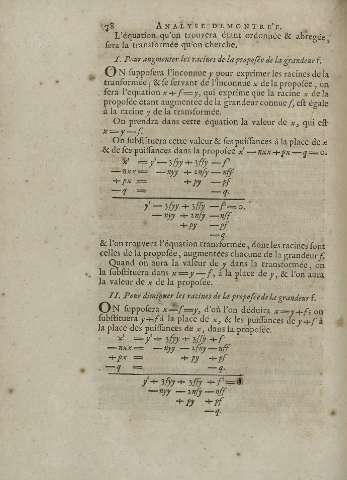 78 ANALYSE DEMONTRÉE.
L'équation qu'on trouvera étant ordonnée & abregée,
sera la transformée qu'on cherche.
I. Pour augmenter les racines de la proposée de la grandeur f.
ON supposera l'inconnue y pour exprimer les racines de la
transformée, & se servant de l'inconnue x de la proposée, on
fera l'équation x + f = y, qui exprime que la racine x de la
proposée étant augmentée de la grandeur connue f, est égale
à la racine y de la transformée.
On prendra dans cette équation la valeur de x, qui est
x = y — f.
On substituera cette valeur & ses puissances à la place de x
& de ses puissances dans la proposée x³ — nxx + px — q = 0.
x³ = y³ — 3fyy + 3ffy — f³
— nxx = — nyy + 2nfy — nff
+ px = + py — pf
— q = — q.
y³ — 3fyy + 3ffy — f³ = 0.
— nyy + 2nfy — nff
+ py — pf
— q.
& l'on trouvera l'équation transformée, dont les racines sont
celles de la proposée, augmentées chacune de la grandeur f.
Quand on aura la valeur de y dans la transformée, on
la substituera dans x = y — f, à la place de y, & l'on aura
la valeur de x de la proposée.
II. Pour diminuer les racines de la proposée de la grandeur f.
ON supposera x — f = y, d'où l'on déduira x = y + f: on
substituera y + f à la place de x, & les puissances de y + f à
la place des puissances de x, dans la proposée.
x³ = y³ + 3fyy + 3ffy + f³
— nxx = — nyy — 2nfy — nff
+ px = + py + pf
— q = — q.
y³ + 3fyy + 3ffy + f³ = 0
— nyy — 2nfy — nff
+ py + pf
— q.